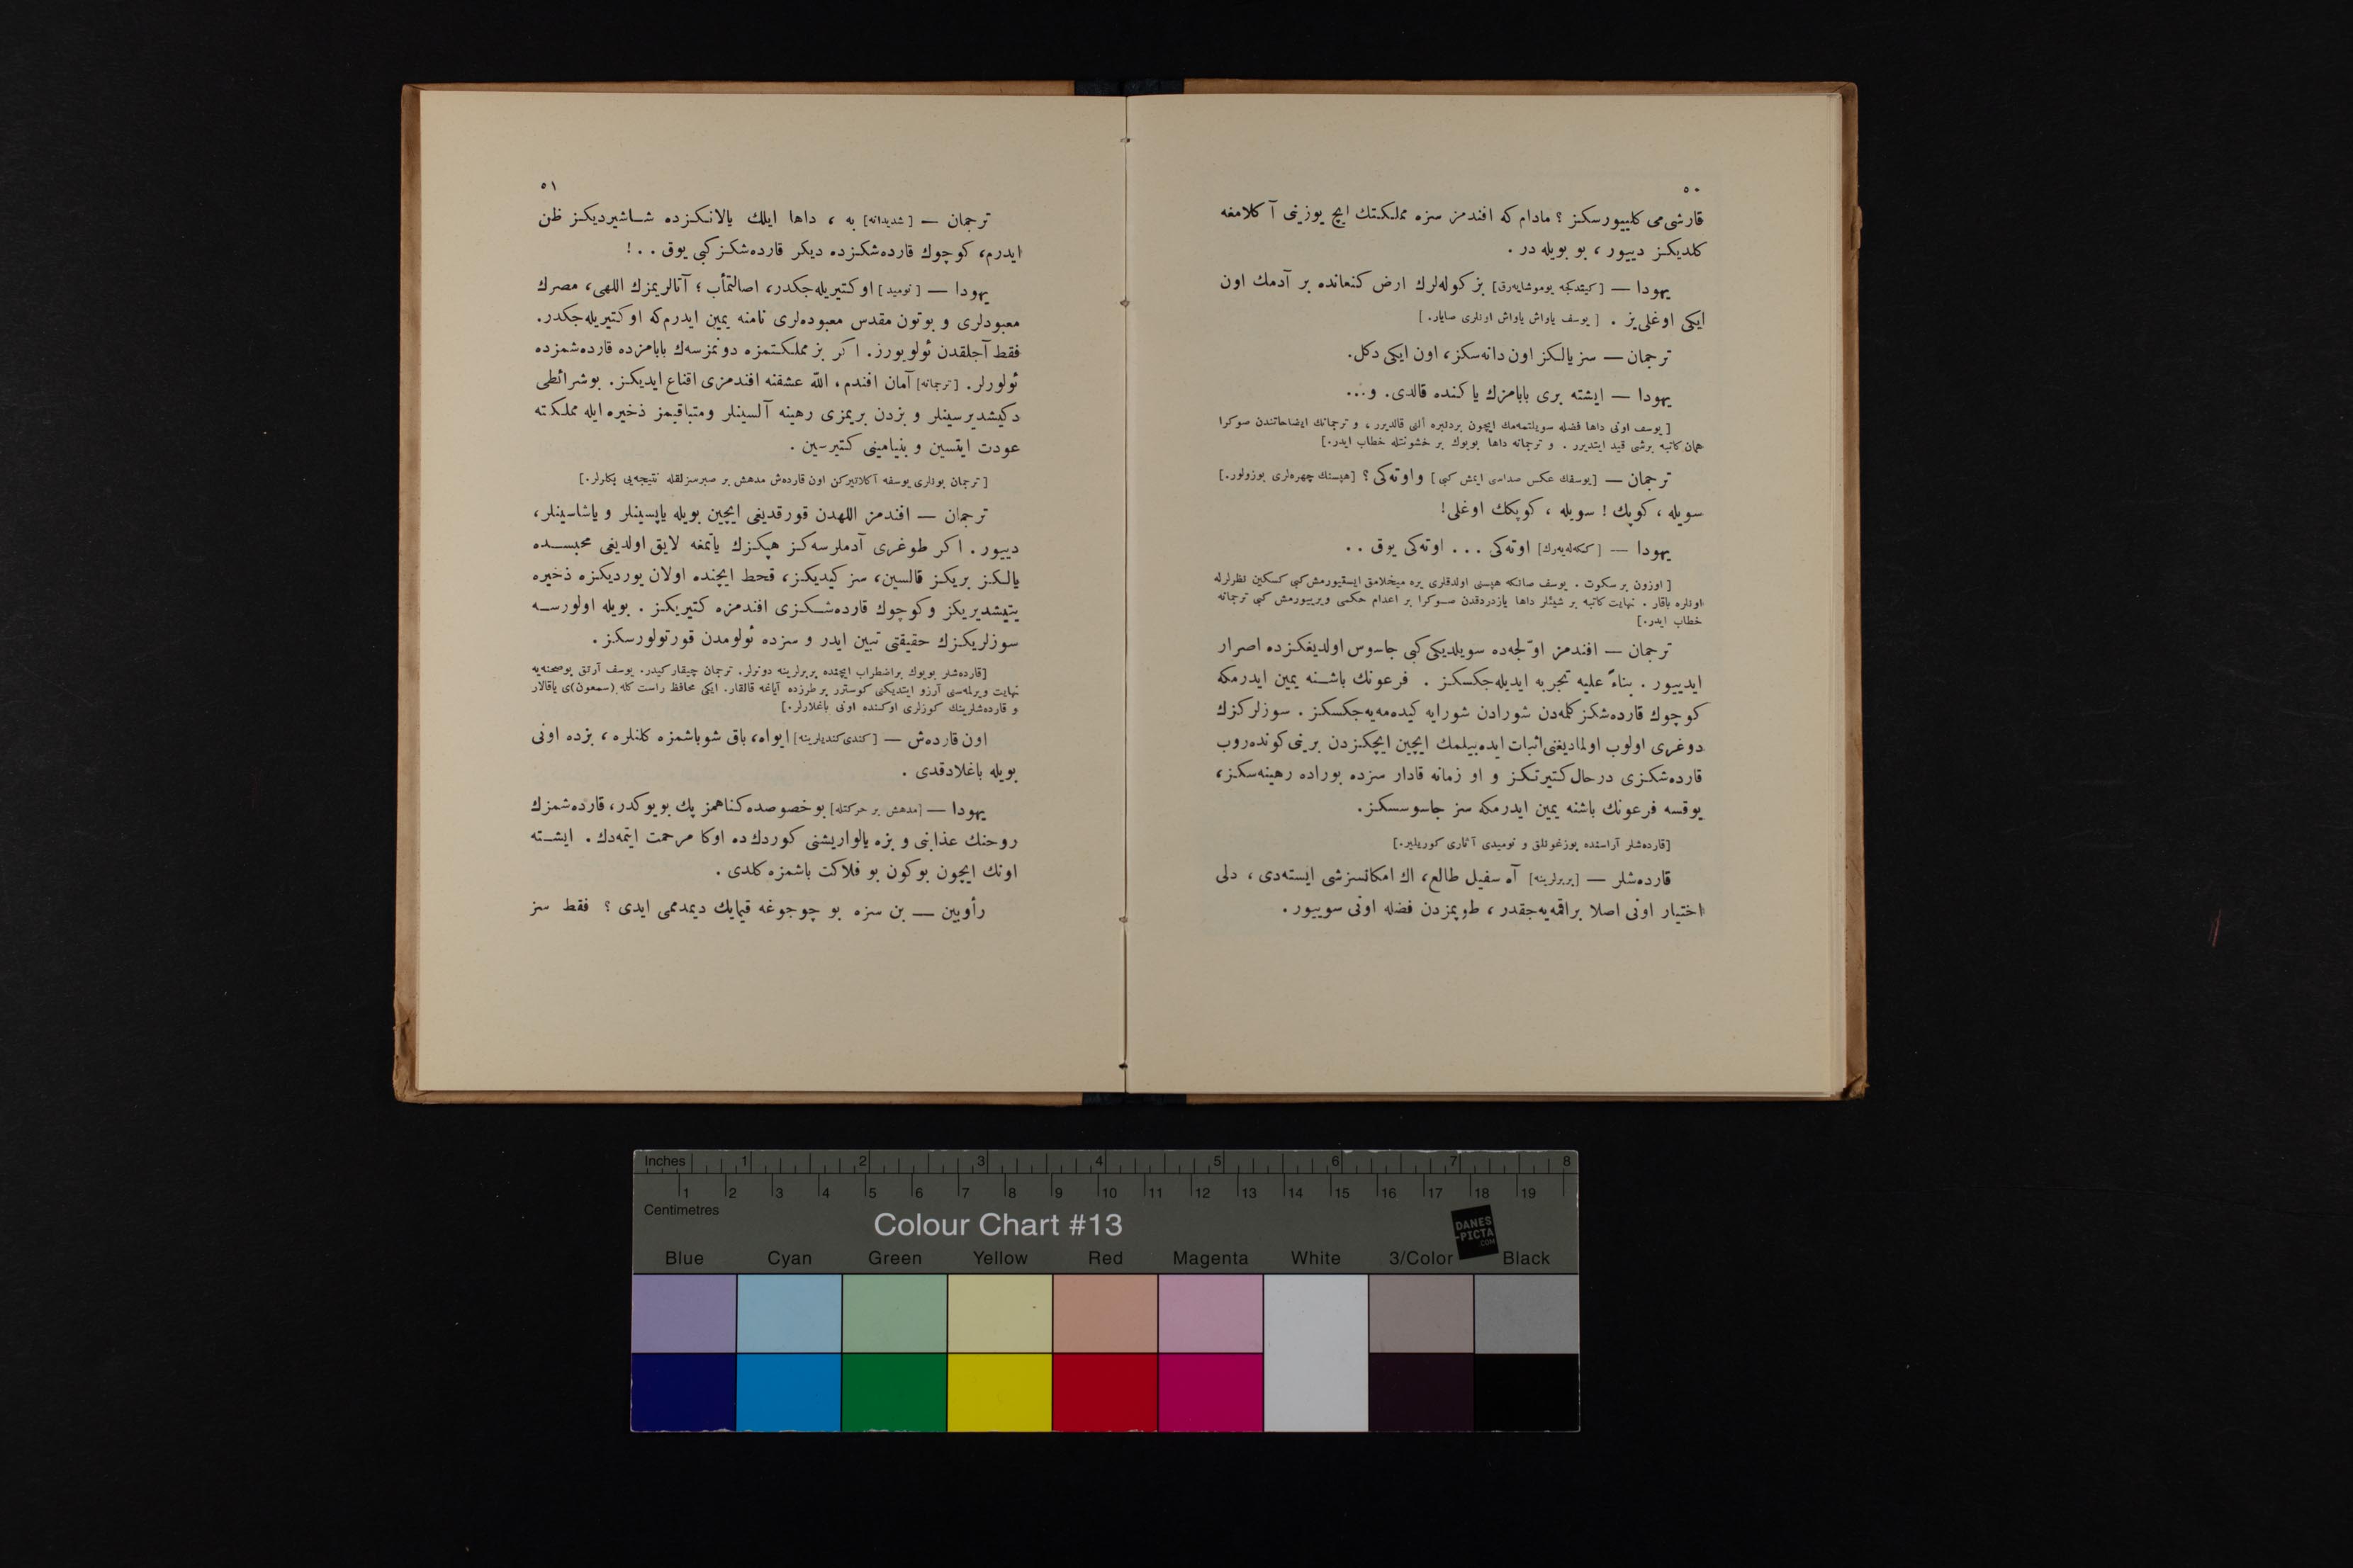 ٥٠
قارشی می كلییورسكز ؟ مادام كه افندمز سزه مملكتك ایچ یوزینی آ كلامغه
كلدیكز دییور ، بو بویله در .
یهودا — [كیتدكجه یوموشایه‌رق] بز كوله‌لرك ارض كنعانده بر آدمك اون
ایكی اوغلی یز . [ یوسف یاواش یاواش اونلری صایار. ]
ترجمان — سز یالكز اون دانه‌سكز، اون ایكی دكل.
یهودا — ایشته بری بابامزك یا كنده قالدی. و...
[ یوسف اونی داها فضله سویلتمه‌مك ایچون بردنبره ألنی قالدیرر ، و ترجمانك ایضاحاتندن صوكرا
همان كاتبه برشی قید ایتدیرر . و ترجمانه داها بویوك بر خشونتله خطاب ایدر.]
ترجمان — [یوسفك عكس صداسی ایمش كبی] و اوته‌كی ؟ [هپسنك چهره‌لری بوزولور.]
سویله ، كوپك ! سویله ، كوپكك اوغلی!
یهودا — [ككه‌له‌یه‌رك] اوته‌كی ... اوته‌كی یوق ..
[ اوزون بر سكوت . یوسف صانكه هپسنی اولدقلری یره میخلامق ایسته‌یورمش كبی كسكین نظرلرله
اونلره باقار . نهایت كاتبه بر شیئلر داها یازدردقدن صوكرا بر اعدام حكمی ویرییورمش كبی ترجمانه
خطاب ایدر.]
ترجمان — افندمز اوّلجه‌ده سویلدیكی كبی جاسوس اولدیغكزده اصرار
ایدییور . بناءً علیه تجربه ایدیله‌جكسكز . فرعونك باشنه یمین ایدرمكه
كوچوك قارده‌شكز كلمه‌دن شورادن شورایه كیده‌مه‌یه‌جكسكز . سوزلركزك
دوغری اولوب اولمادیغنی اثبات ایده‌بیلمك ایچین ایچكزدن برینی كونده‌روب
قارده‌شكزی درحال كتیرتكز و او زمانه قادار سزده بوراده رهینه‌سكز،
یوقسه فرعونك باشنه یمین ایدرمكه سز جاسوسسكز.
[قارده‌شلر آراسنده یوزغونلق و نومیدی آثاری كوریلیر.]
قارده‌شلر — [بربرلرینه] آه سفیل طالع، اك امكانسز شی ایسته‌دی ، دلی
اختیار اونی اصلا براقمه‌یه‌جقدر ، طوپمزدن فضله اونی سوییور.
٥١
ترجمان — [شدیدانه] به ، داها ایلك یالانكزده شاشیردیكز ظن
ایدرم، كوچوك قارده‌شكزده دیكر قارده‌شكز كبی یوق ..!
یهودا — [نومید] او كتیریله‌جكدر، اصالتمأب ؛ آتالریمزك اللهی، مصرك
معبودلری و بوتون مقدس معبوده‌لری نامنه یمین ایدرم كه او كتیریله‌جكدر.
فقط آجلقدن ئولویورز. اكر بز مملكتمزه دونمزسه‌ك بابامزده قارده‌شمزده
ئولورلر. [ترجمانه] آمان افندم، الله عشقنه افندمزی اقناع ایدیكز. بوشرائطی
دكیشدیرسینلر و بزدن بریمزی رهینه آلسینلر ومتباقیمز ذخیره ایله مملكته
عودت ایتسین و بنیامینی كتیرسین .
[ ترجمان بونلری یوسفه آكلاتیركن اون قارده‌ش مدهش بر صبرسزلقله نتیجه‌یی بكلرلر.]
ترجمان — افندمز اللهدن قورقدیغی ایچین بویله یاپسینلر و یاشاسینلر،
دییور . اكر طوغری آدملرسه‌كز هپكزك یاتمغه لایق اولدیغی محبسده
یالكز بریكز قالسین، سز كیدیكز، قحط ایچنده اولان یوردیكزه ذخیره
یتیشدیریكز وكوچوك قارده‌شكزی افندمزه كتیریكز . بویله اولورسه
سوزلریكزك حقیقتی تبین ایدر و سزده ئولومدن قورتولورسكز .
[قارده‌شلر بویوك براضطراب ایچنده بربرلرینه دونرلر. ترجمان چیقار كیدر. یوسف آرتق بوصحنه‌یه
نهایت ویرلمه‌سنی آرزو ایتدیكنی كوسترر بر طرزده آیاغه قالقار. ایكی محافظ راست كله (سمعون)ی یاقالار
و قارده‌شلرینك كوزلری اوكنده اونی باغلارلر.]
اون قارده‌ش — [كندی كندیلرینه] ایواه، باق شوباشمزه كلنلره ، بزده اونی
بویله باغلادقدی .
یهودا — [مدهش بر حركتله] بوخصوصده كناهمز پك بویوكدر، قارده‌شمزك
روحنك عذابنی و بزه یالواریشنی كوردك‌ده اوكا مرحمت ایتمه‌دك . ایشته
اونك ایچون بوكون بو فلاكت باشمزه كلدی .
رأوبین — بن سزه بو چوجوغه قیمایك دیمدممی ایدی ؟ فقط سز
Inches 1 2 3 4 5 6 7 8
1 2 3 4 5 6 7 8 9 10 11 12 13 14 15 16 17 18 19
Centimetres
Colour Chart #13
DANES
-PICTA
.COM
Blue Cyan Green Yellow Red Magenta White 3/Color Black